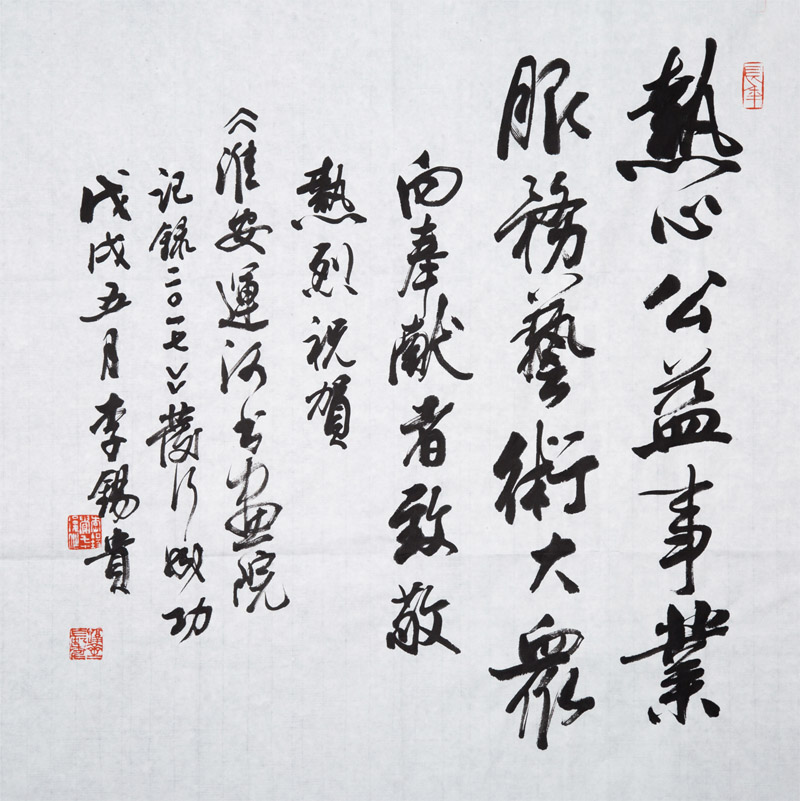 熱心公益事業
服務藝術大眾
向奉獻者致敬
熱烈祝賀
《淮安運河书画院
记録二〇一七》發行成功
戊戌五月李錫貴